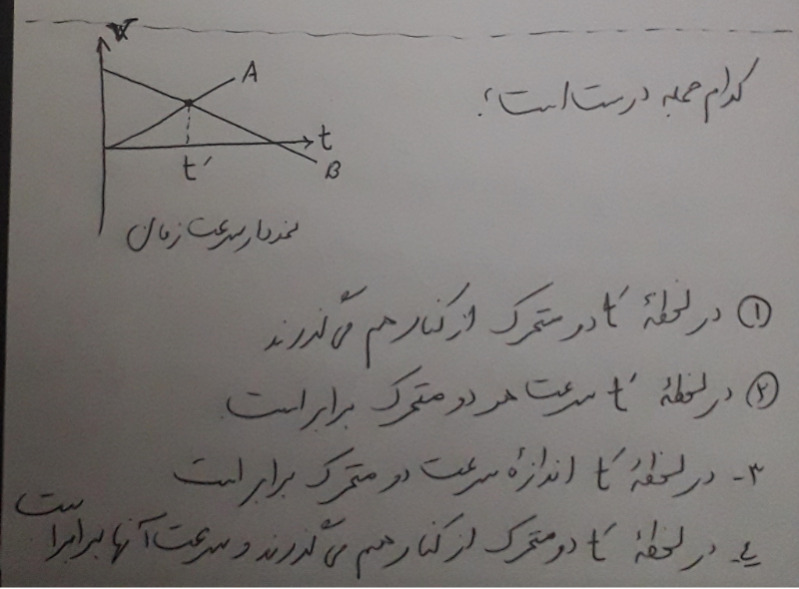 V
A
کدام جمله درست است؟
t
t′
B
نمودار سرعت زمان
① در لحظهٔ t′ دو متحرک از کنار هم می‌گذرند
② در لحظهٔ t′ سرعت هر دو متحرک برابر است
۳- در لحظهٔ t′ اندازهٔ سرعت دو متحرک برابر است
۴- در لحظهٔ t′ دو متحرک از کنار هم می‌گذرند و سرعت آنها برابر است